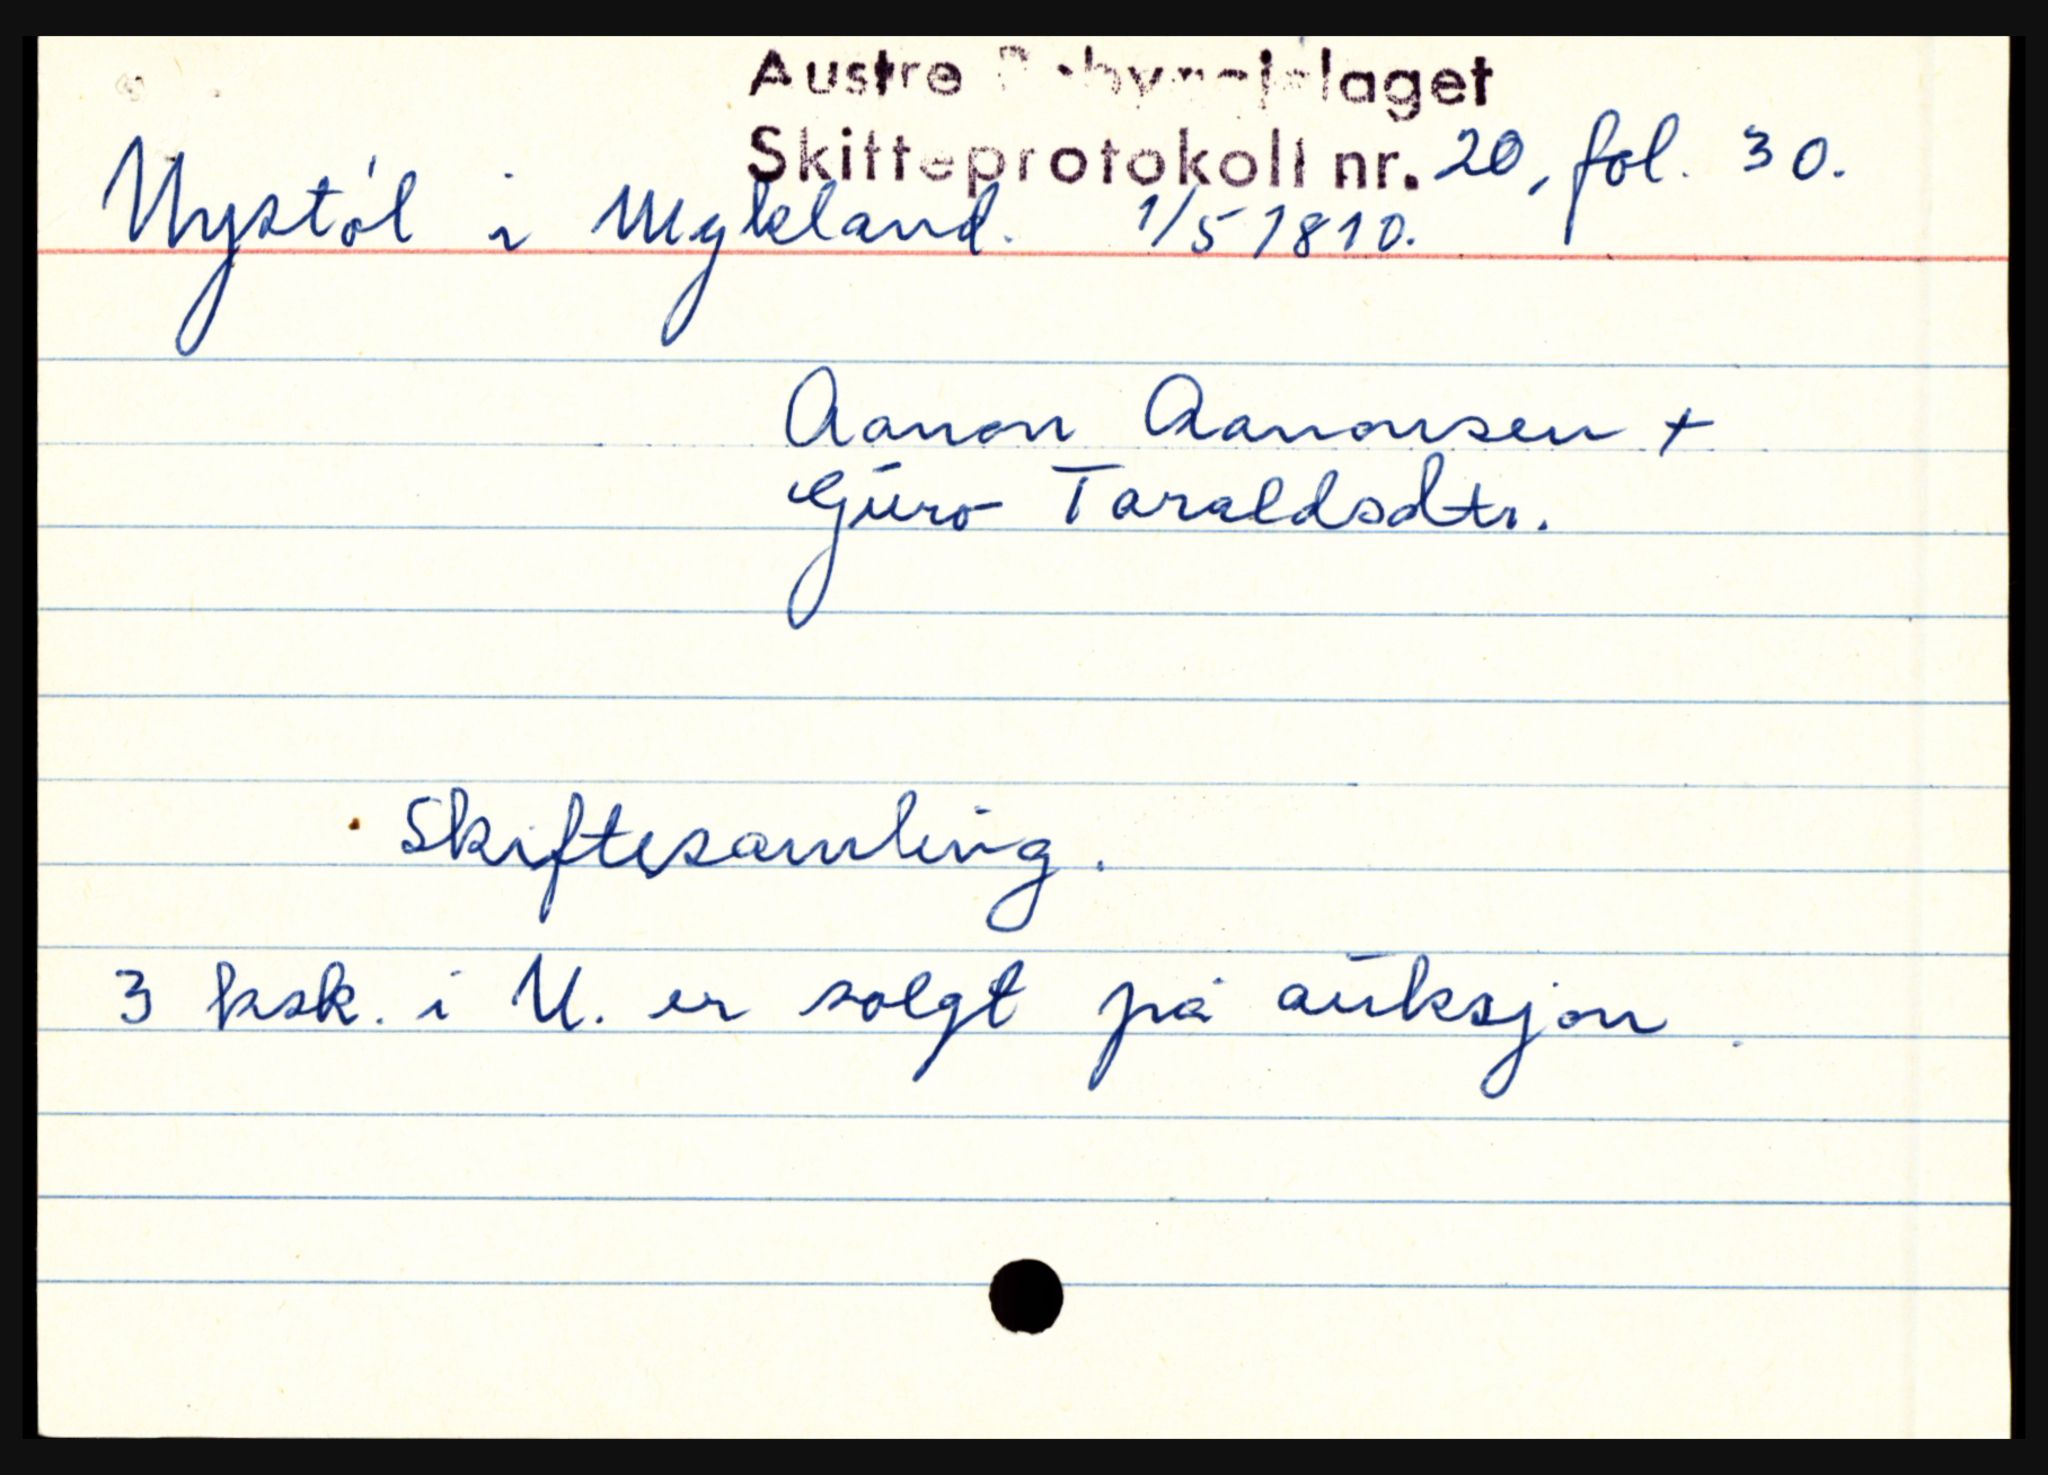 Austre laget
Skifteprotokoll nr. 20, fol. 30.
Nystøl i Mykland. 1/5 1810.
Aanon Aanonsen +
Guro Taraldsdtr.
Skiftesamling.
3 ksk. i N. er solgt på auksjon.